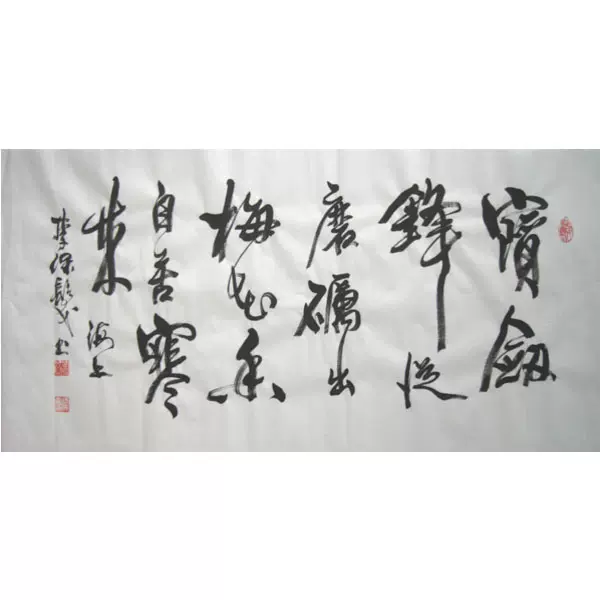 寶劔
鋒從
磨礪出
梅花香
自苦寒
來 海上
李
書